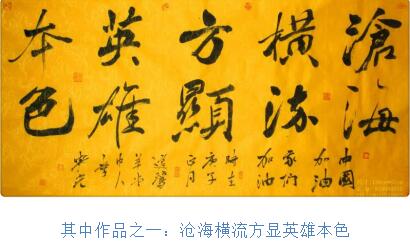 滄海
橫流
方顯
英雄
本色
中國
加油
我们
加油
時在
庚子
正月
其中作品之一：沧海横流方显英雄本色